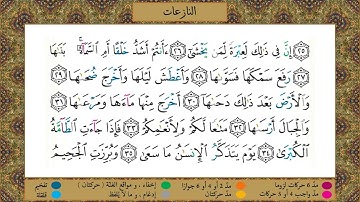 النازعات
﴿٢٥﴾ إِنَّ فِي ذَٰلِكَ لَعِبْرَةً لِّمَن يَخْشَىٰٓ ﴿٢٦﴾ ءَأَنتُمْ أَشَدُّ خَلْقًا أَمِ ٱلسَّمَآءُ ۚ بَنَىٰهَا
﴿٢٧﴾ رَفَعَ سَمْكَهَا فَسَوَّىٰهَا ﴿٢٨﴾ وَأَغْطَشَ لَيْلَهَا وَأَخْرَجَ ضُحَىٰهَا ﴿٢٩﴾
وَٱلْأَرْضَ بَعْدَ ذَٰلِكَ دَحَىٰهَآ ﴿٣٠﴾ أَخْرَجَ مِنْهَا مَآءَهَا وَمَرْعَىٰهَا ﴿٣١﴾
وَٱلْجِبَالَ أَرْسَىٰهَا ﴿٣٢﴾ مَتَٰعًا لَّكُمْ وَلِأَنْعَٰمِكُمْ ﴿٣٣﴾ فَإِذَا جَآءَتِ ٱلطَّآمَّةُ
ٱلْكُبْرَىٰ ﴿٣٤﴾ يَوْمَ يَتَذَكَّرُ ٱلْإِنسَٰنُ مَا سَعَىٰ ﴿٣٥﴾ وَبُرِّزَتِ ٱلْجَحِيمُ
مد ٦ حركات لزوما مد ٢ أو ٤ أو ٦ جوازا إخفاء ، و مواقع الغنة ( حركتان ) تفخيم
مد واجب ٤ أو ٥ حركات مد حركتان إدغام ، و ما لا يلفظ قلقلة